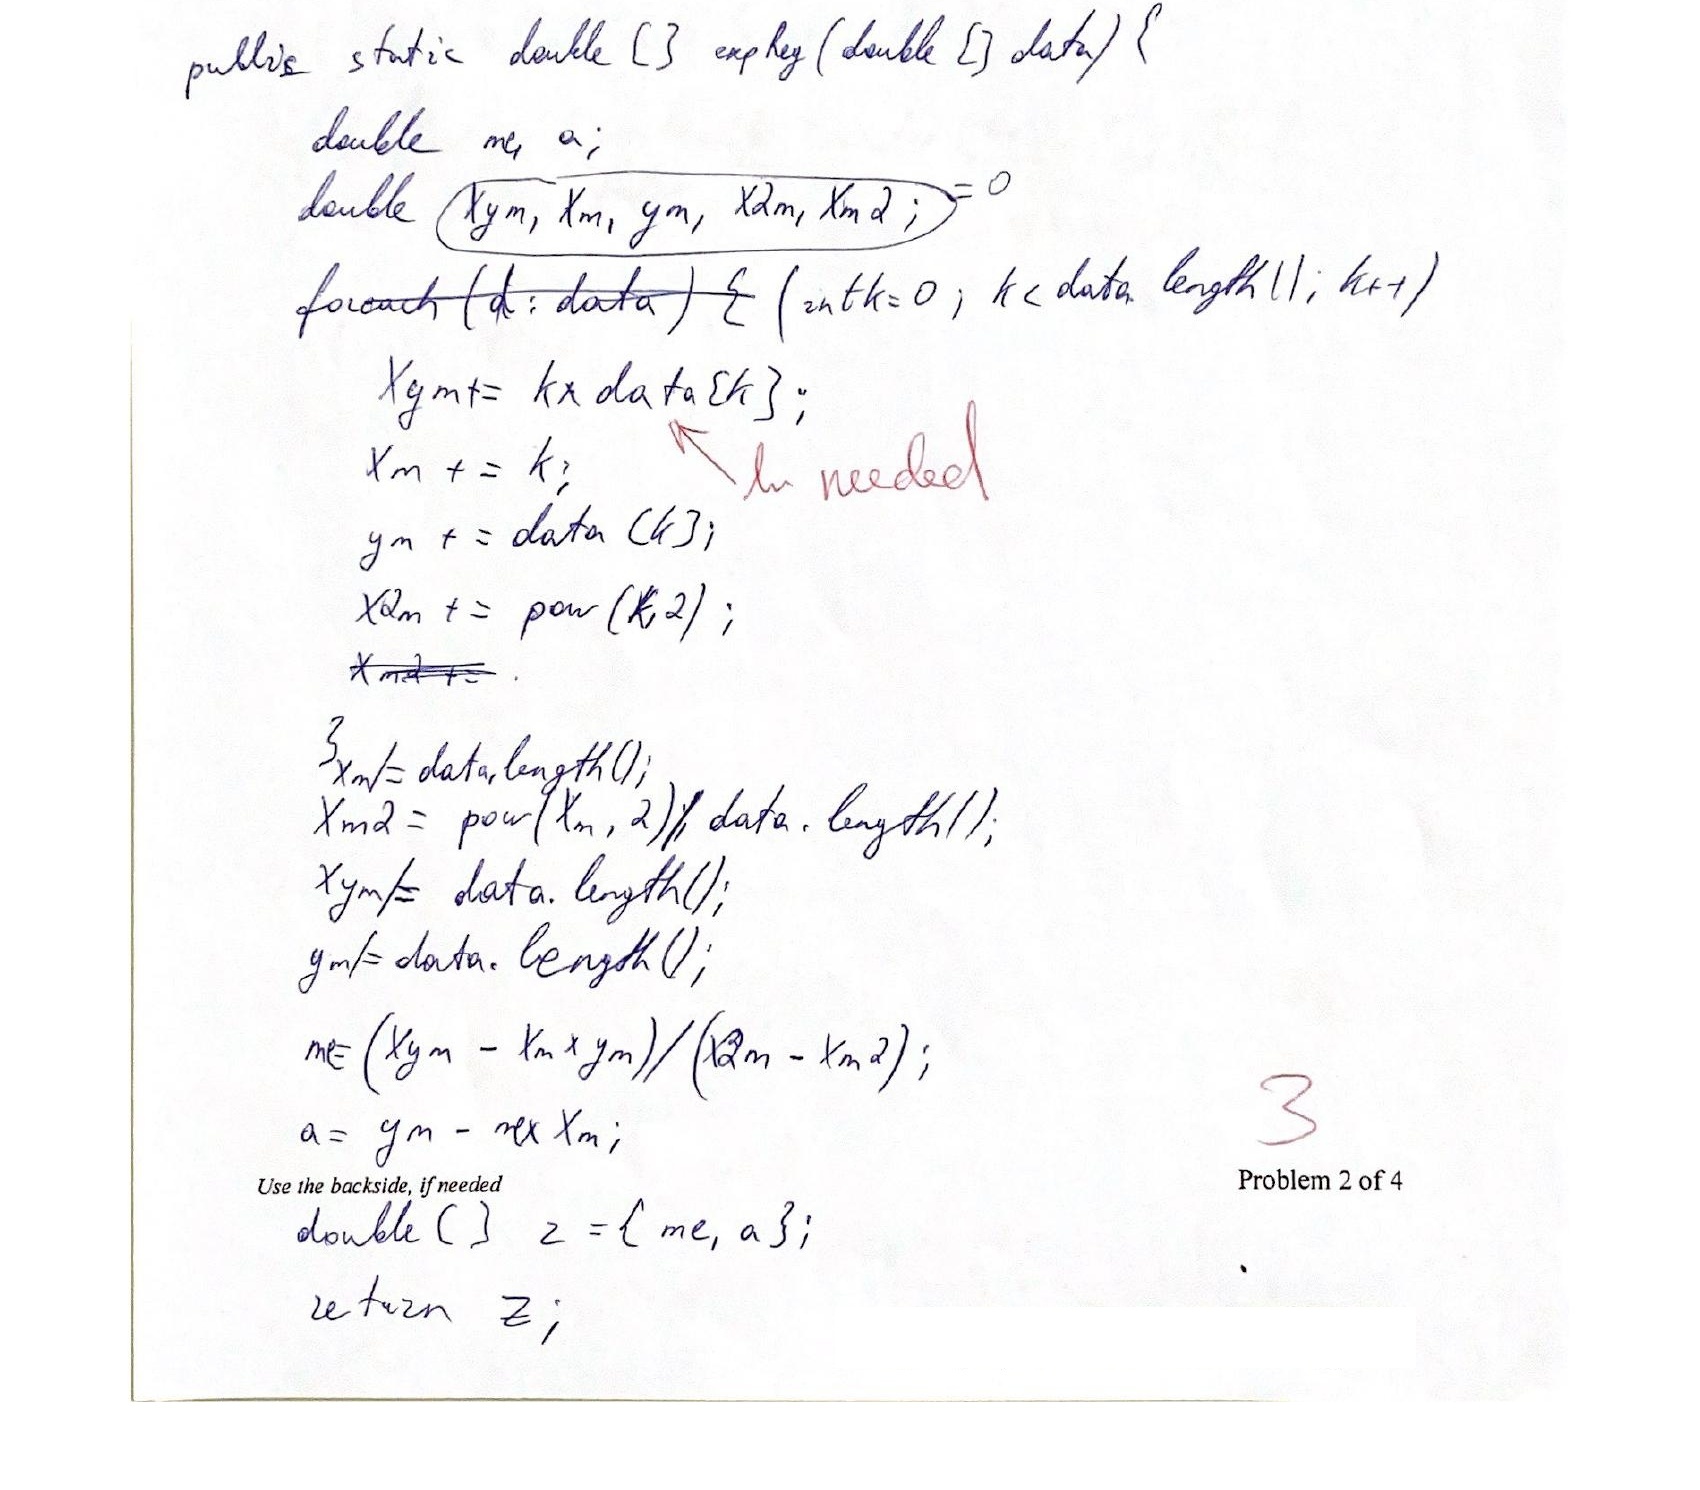 public static double [] expReg (double [] data) {
double me, a;
double xym, xm, ym, x2m, xm2; = 0
foreach (d : data) { (int k=0; k < data.length(); k++)
xym += k * data[k];
ln needed
xm += k;
ym += data[k];
x2m += pow(k,2);
xm2 +=
}
xm /= data.length();
xm2 = pow(xm, 2)/ data.length();
xym /= data.length();
ym /= data.length();
me = (xym - xm * ym)/(x2m - xm2);
a = ym - me * xm;
3
Use the backside, if needed
Problem 2 of 4
double [] z = { me, a };
return z;